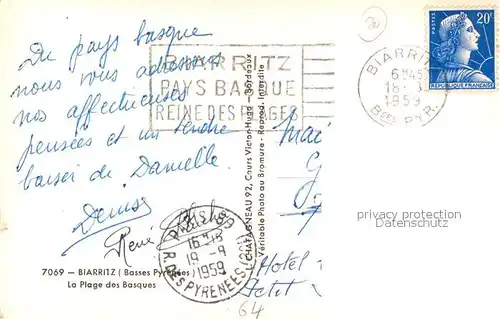 Du pays basque
nous vous adressons
nos affectueuses
pensées et un tendre
baiser de Danielle
Denise
René
7069 — BIARRITZ (Basses Pyrénées)
La Plage des Basques
BIARRITZ
PAYS BASQUE
REINE DES PLAGES
L. CHATAGNEAU 92, Cours Victor-Hugo - Bordeaux
Véritable Photo au Bromure - Reprod. Interdite
POSTES
20F
REPUBLIQUE FRANÇAISE
BIARRITZ
6H45
1959
Bses PYR.
16H15
19-9
1959
R. DES PYRENEES
Hotel
64
privacy protection
DatenschutzUmriss